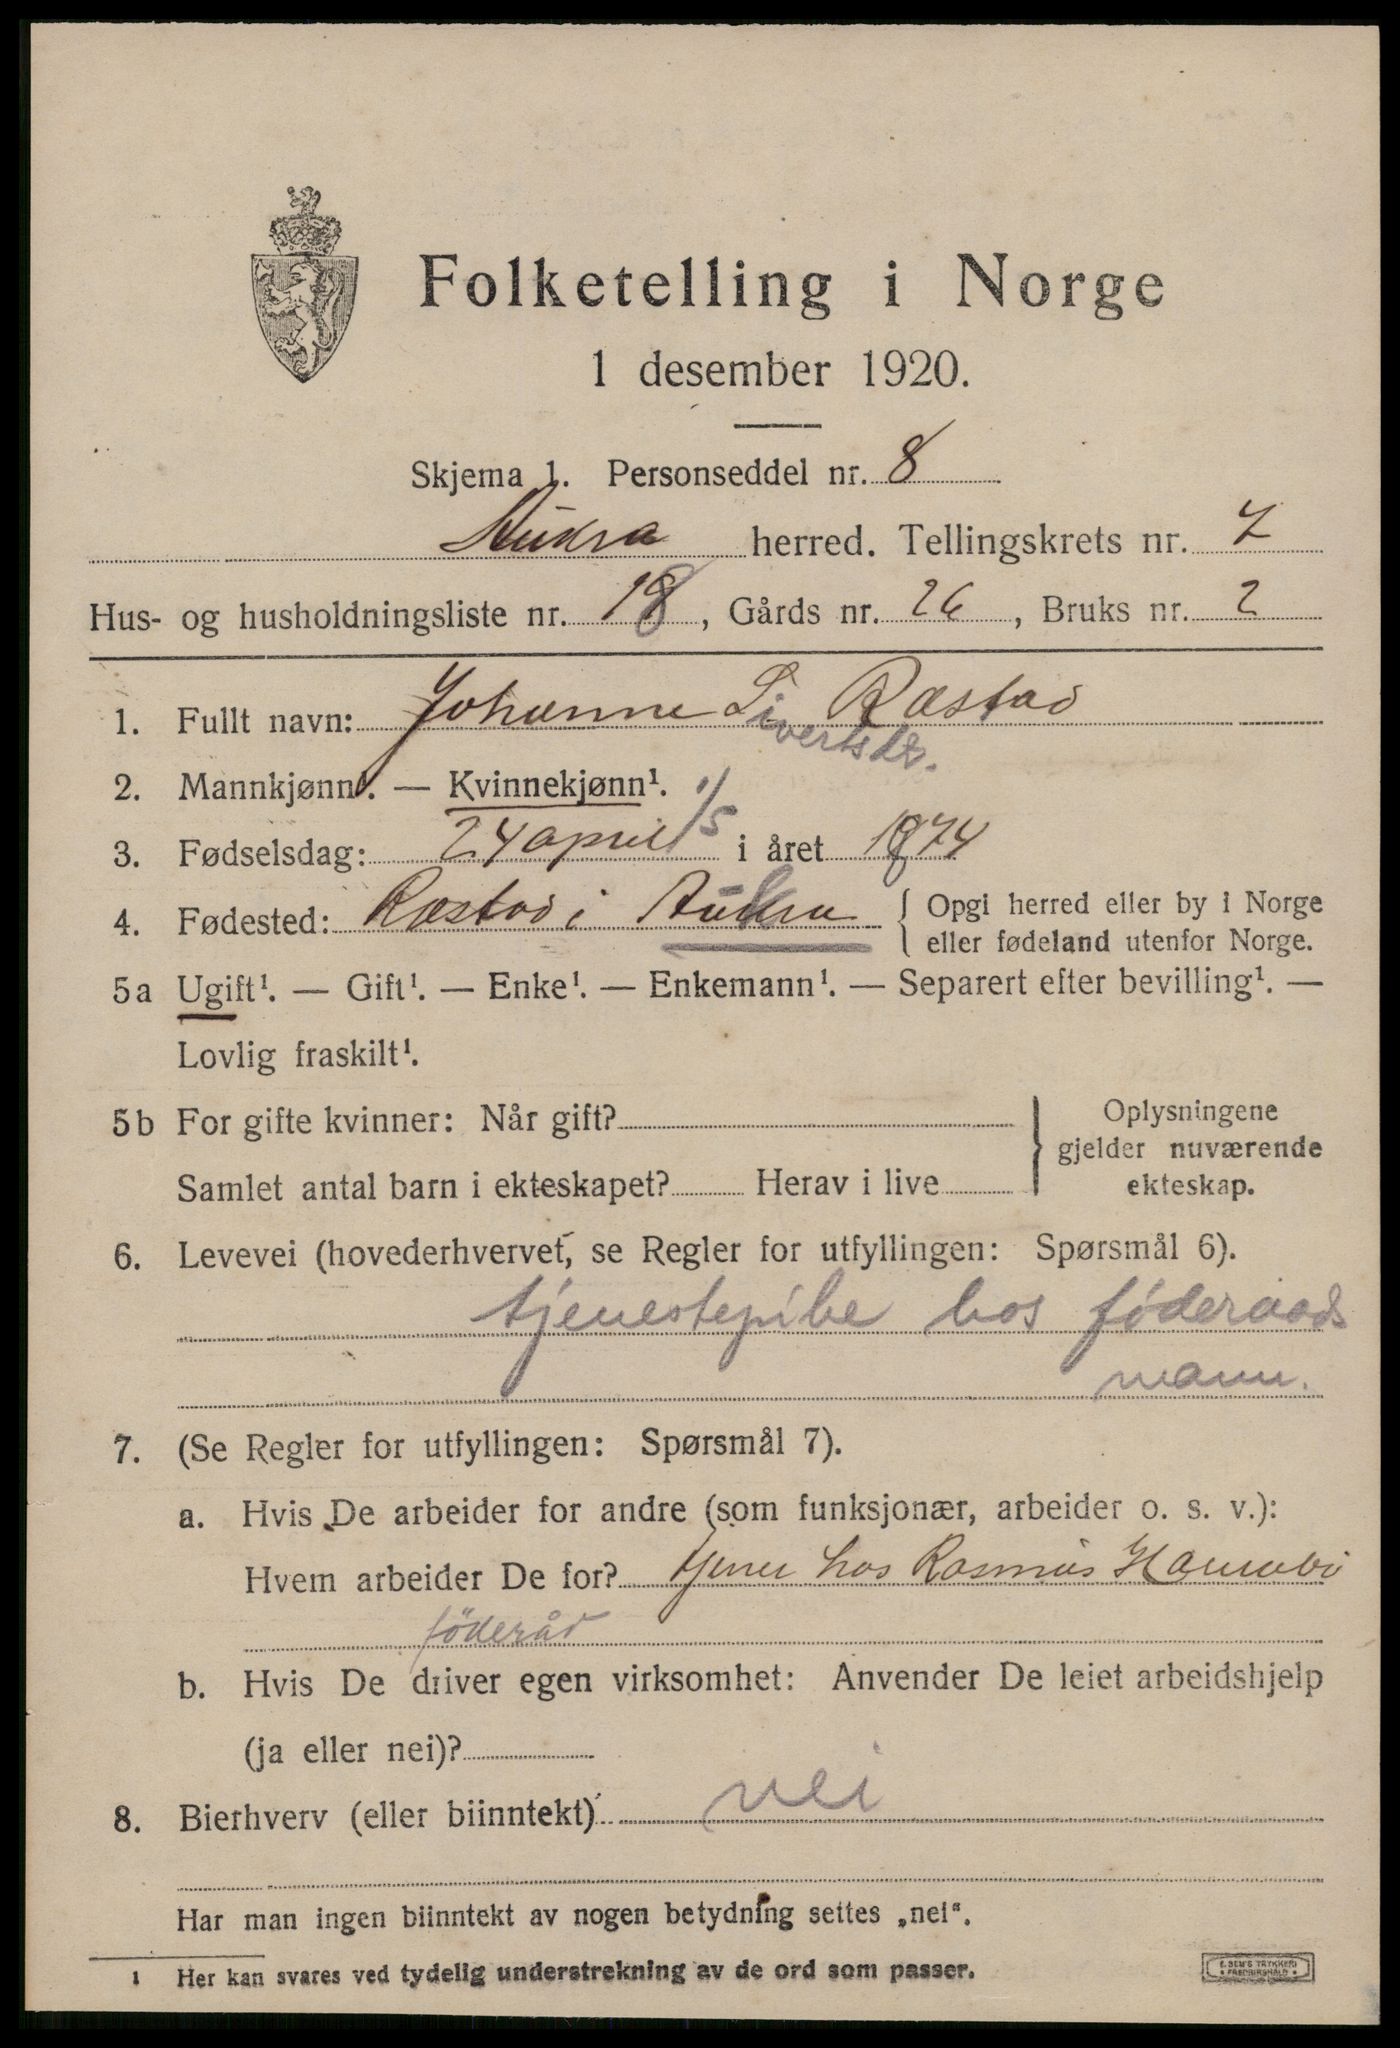 Folketelling i Norge
1 desember 1920.
Skjema 1. Personseddel nr. 8
Aukra herred. Tellingskrets nr. 7
Hus- og husholdningsliste nr. 18, Gårds nr. 26, Bruks nr. 2
1. Fullt navn: Johanne Sivertsdtr. Ræstad
2. Mannkjønn¹. — Kvinnekjønn¹.
1/5
3. Fødselsdag: 24 april i året 1874
4. Fødested: Ræstad i Aukra { Opgi herred eller by i Norge
eller fødeland utenfor Norge.
5a Ugift¹. — Gift¹. — Enke¹. — Enkemann¹. — Separert efter bevilling¹. —
Lovlig fraskilt¹.
5b For gifte kvinner: Når gift?
Samlet antal barn i ekteskapet? Herav i live
} Oplysningene
gjelder nuværende
ekteskap.
6. Levevei (hovederhvervet, se Regler for utfyllingen: Spørsmål 6).
tjenestepike hos föderaads
mann.
7. (Se Regler for utfyllingen: Spørsmål 7).
a. Hvis De arbeider for andre (som funksjonær, arbeider o. s. v.):
Hvem arbeider De for? tjener hos Rasmus
föderåd
b. Hvis De driver egen virksomhet: Anvender De leiet arbeidshjelp
(ja eller nei)?
8. Bierhverv (eller biinntekt) nei
Har man ingen biinntekt av nogen betydning settes „nei“.
1 Her kan svares ved tydelig understrekning av de ord som passer.
E. SEM'S TRYKKERI
FREDRIKSHALD